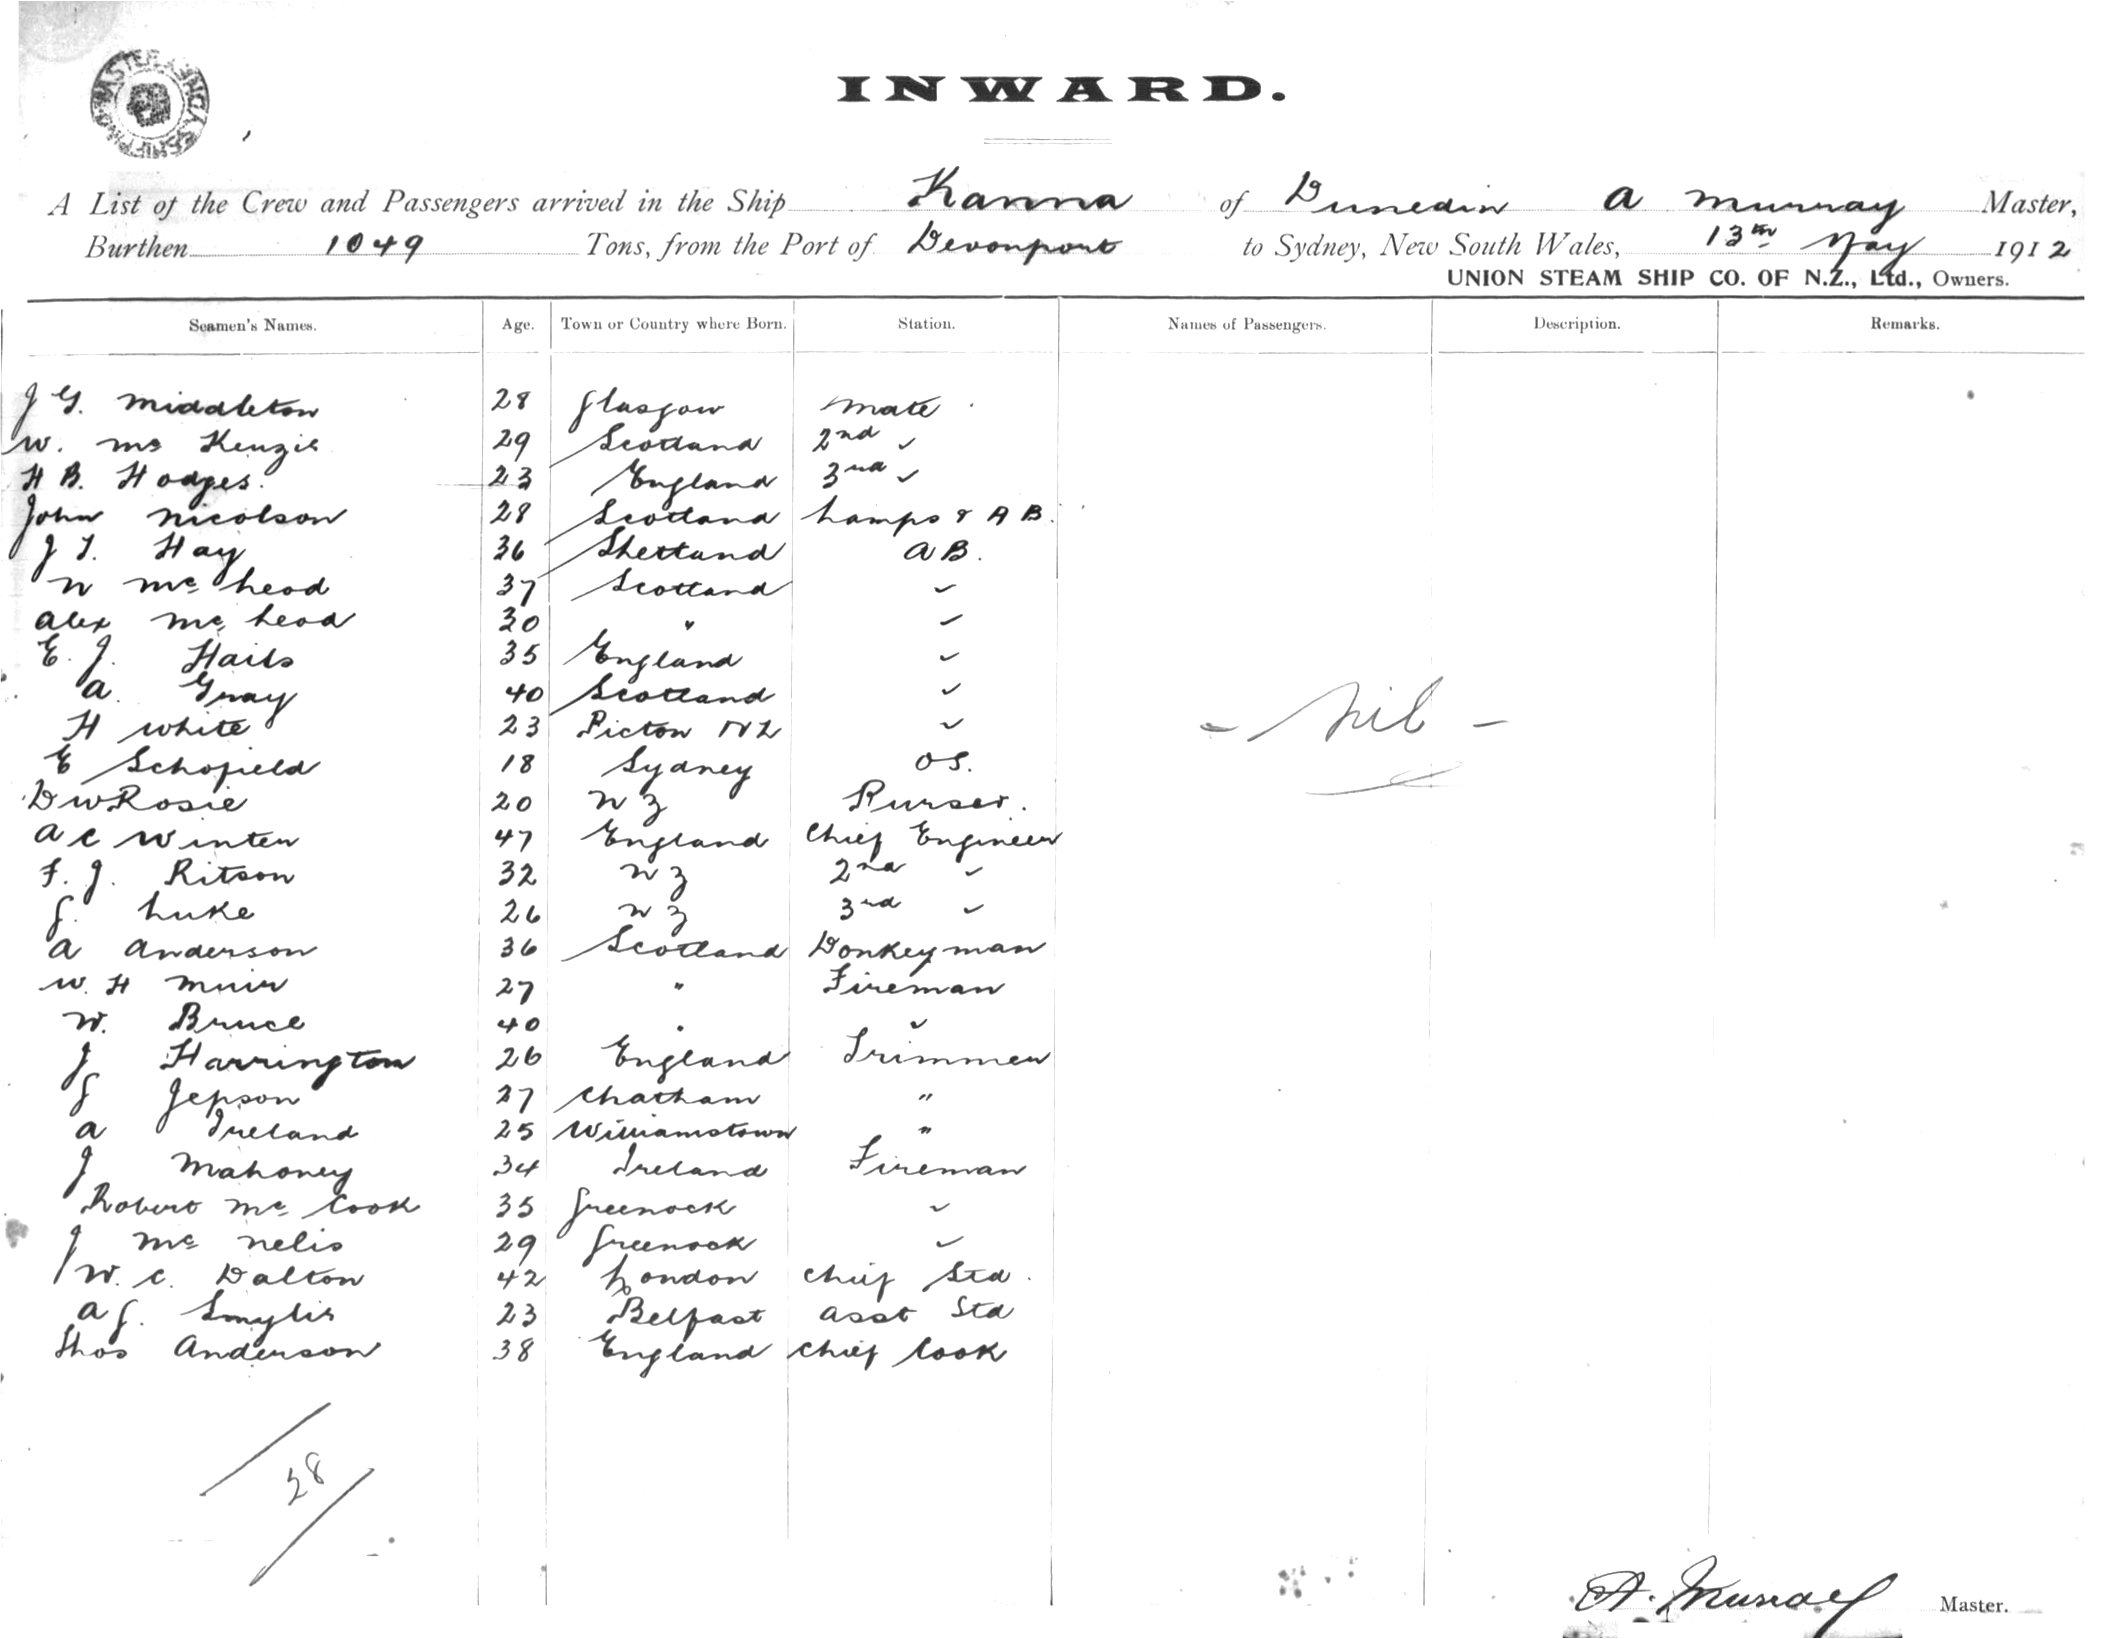 SHIPPING MASTER SYDNEY
INWARD.
A List of the Crew and Passengers arrived in the Ship Kanna of Dunedin A Murray Master,
Burthen 1049 Tons, from the Port of Devonport to Sydney, New South Wales, 13th May 1912
UNION STEAM SHIP CO. OF N.Z., Ltd., Owners.
Seamen's Names. Age. Town or Country where Born. Station. Names of Passengers. Description. Remarks.
J G. Middleton 28 Glasgow Mate
W. Mc Kenzie 29 Scotland 2nd "
H B. Hodges. 23 England 3rd "
John Nicolson 28 Scotland Lamps & A B.
J T. Hay 36 Shetland A B.
N Mc Leod 37 Scotland "
Alex Mc Leod 30 " "
E. J. Hails 35 England "
A. Gray 40 Scotland "
H White 23 Picton NZ "
E Schofield 18 Sydney OS.
D W Rosie 20 N Z Purser.
A C Winter 47 England Chief Engineer
F. J. Ritson 32 N Z 2nd "
G. Luke 26 N Z 3rd "
A Anderson 36 Scotland Donkeyman
W. H Muir 27 " Fireman
W. Bruce 40 " "
J Harrington 26 England Trimmer
G Jepson 27 Chatham "
A Ireland 25 Williamstown "
J Mahoney 34 Ireland Fireman
Robert Mc Cook 35 Greenock "
J Mc Nelis 29 Greenock "
W. C. Dalton 42 London Chief Std.
A G. Smylie 23 Belfast Asst Std
Thos Anderson 38 England Chief Cook
- Nil -
28
A. Murray Master.